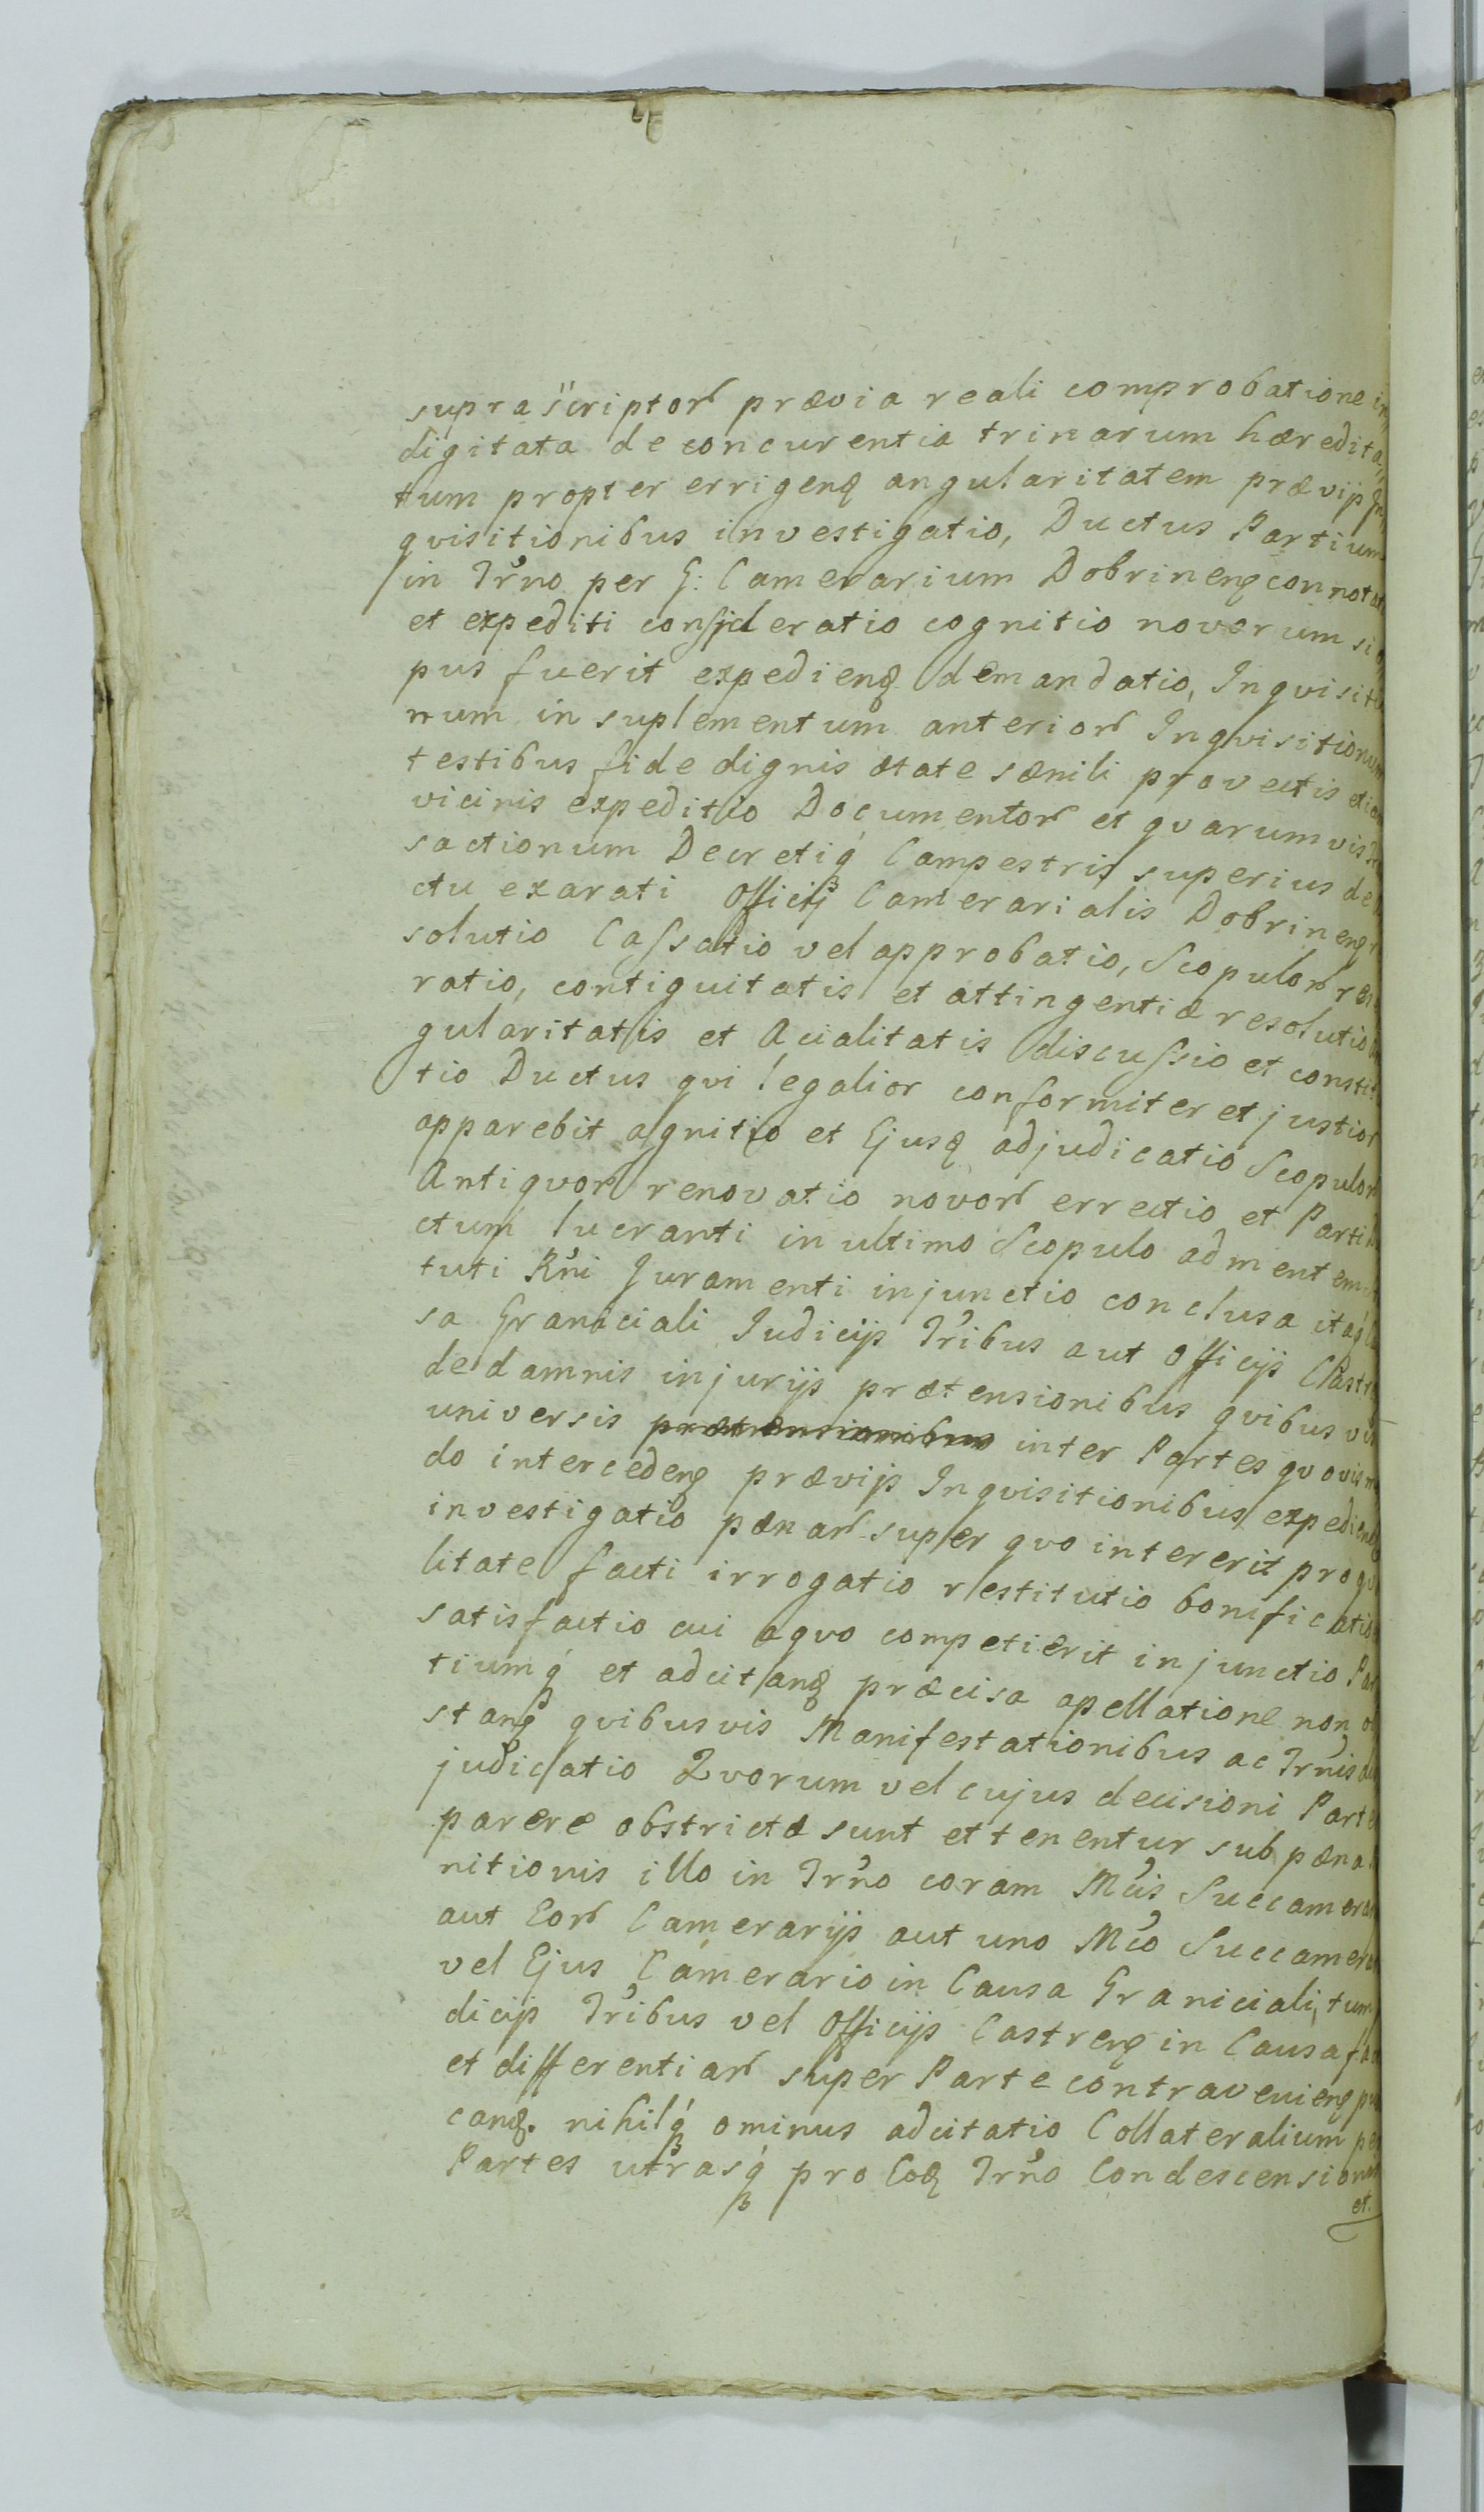 supra scriptor prævia reali comprobatione in
digitata de concurentia trinarum hæredita
tum propter errigenę angularitatem prævijs In
qvisitionibus investigatio, Ductus Partium
in Trno per G: Camerarium Dobrinenę connotat
et expediti consideratio cognitio novorum si o
pus fuerit expedienę demandatio, Inqvisitio
num in suplementum anterior Inqvisitionum
testibus fide dignis ætate sænili provectis etia
vicinis expeditio Documentor et qvarumvis
sactionum Decretiq́ Campestris superius de
ctu exarati Officij Camerarialis Dobrinenę
solutio Cassatio vel approbatio, Scopulor
ratio, contiguitatis et attingentiæ resolutio
gularitatis et Acialitatis discussio et constit
tio Ductus qvi legalior conformiter et justior
apparebit agnitio et Ejusę adjudicatio Scopulor
Antiqvor renovatio novor errectio et Parti
ctum lucranti in ultimo Scopulo ad mentem
tuti Rńi Juramenti injunctio conclusa itaq́
sa Graniciali Judicijs Tribus aut Officijs Castr
de damnis injurijs prætensionibus qvibus vis
universis prætensionibus inter Partes qvovis m
do intercedenę prævijs Inqvisitionibus expedienę
investigatio pænar super qvo intererit pro qv
litate facti irrogatio restitutio bonificatio
satisfactio cui aqvo competierit injunctio Par
tiumq́ et adcitanę præcisa apellatione non ob
stanę qvibusvis Manifestationibus ac Trnis
judicatio Qvorum vel cujus decisioni Partes
parere obstrictæ sunt et tenentur sub pæna
nitionis illo in Trno coram Mcis Succamerar
aut Eor Camerarijs aut uno Mco Succamera
vel Ejus Camerario in Causa Graniciali, tum
dicijs Tribus vel Officijs Castrenę in Causa fa
et differentiar super Parte contravenienę
canę. nihilq́ ominus adcitatio Collateralium per
Partes utrasq́ pro Eoę Trno Condescension
et.